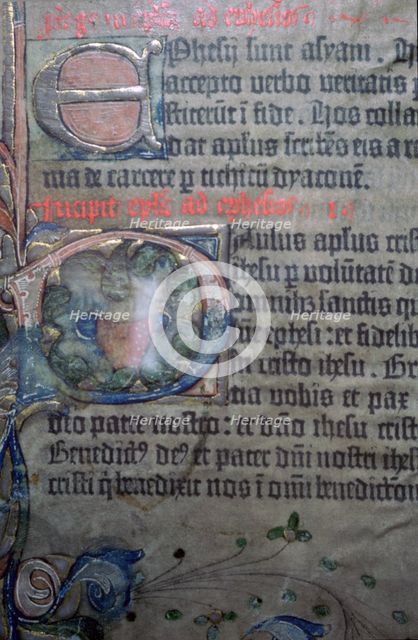 ad ephesios
Ephesij sunt asyani. H
accepto verbo veritatis p
stiterūt ī fide. Hos colla
dat aplus scribēs eis a ro
ma de carcere p tichicū dyaconē.
Incipit epła ad ephesios
Paulus aplus crist
ihesu p volūtatē d
omnibꝫ sanctis qu
ephesi. et fidelib
cristo ihesu. Gr
tia vobis et pax
deo patre nostro. et dn̄o ihesu crist
Benedictꝰ deꝰ et pater dn̄i nostri ihes
cristi q̄ benedixit nos ī omī benedictōn
Heritage Heritage Heritage
Heritage Heritage Heritage
Heritage Heritage